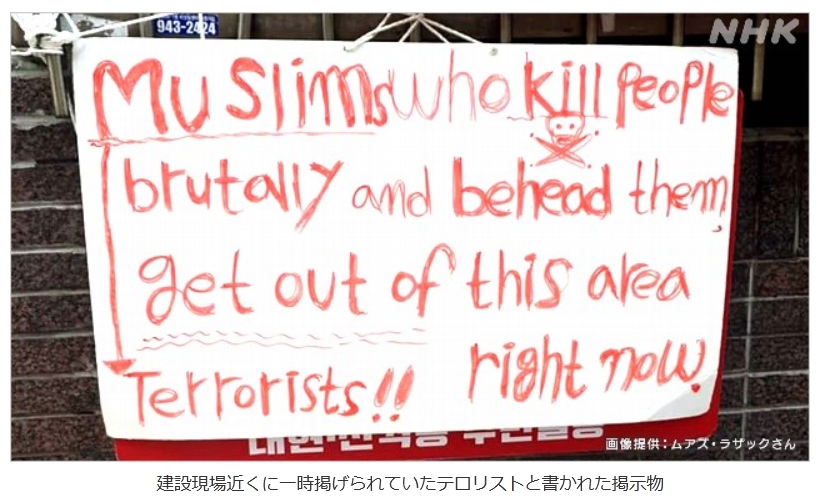 943-2424
NHK
Muslims who kill people
brutally and behead them,
get out of this area
right now.
Terrorists!!
画像提供：ムアズ・ラザックさん
建設現場近くに一時掲げられていたテロリストと書かれた掲示物